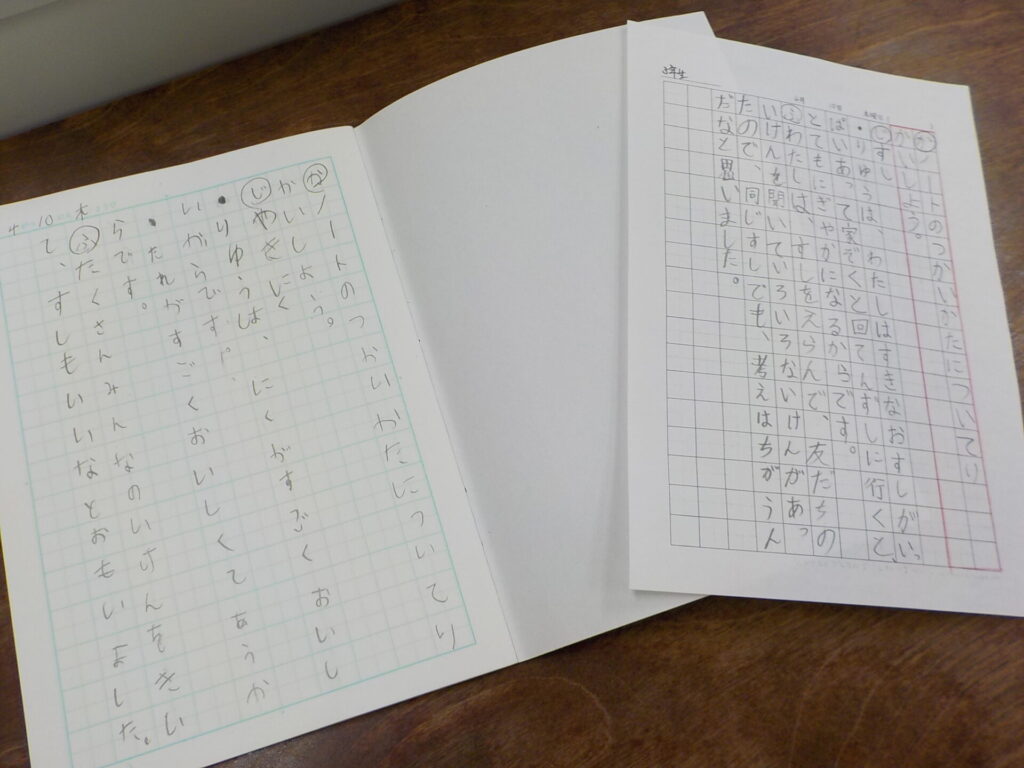 3年生
か ノートのつかいかたについてり
かいしよう。
じ すし
・りゆうは、わたしはすきなおすしがいっ
ぱいあって家ぞくと回てんずしに行くと、
とてもにぎやかになるからです。
ふ わたしは、すしをえらんで、友だちの
いけんを聞いていろいろないけんがあっ
たので、同じすしでも、考えはちがうん
だなと思いました。
4/10 木
か ノートのつかいかたについてり
かいしよう。
じ やきにく
・りゆうは、にくがすごくおいし
いからです。
・たれがすごくおいしくてあうか
らです。
ふ たくさんみんなのいけんをきい
て、すしもいいなとおもいました。